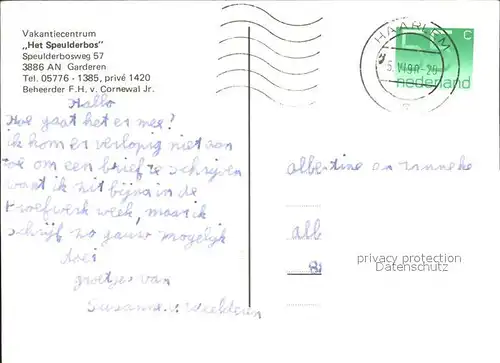 Vakantiecentrum
„Het Speulderbos"
Speulderbosweg 57
3886 AN Garderen
Tel. 05776 - 1385, privé 1420
Beheerder F.H. v. Cornewal Jr.
Hallo
Hoe gaat het er mee?
ik kom er verlopig niet aan
toe om een brief te schrijven
want ik zit bijna in de
proefwerk week, maar ik
schrijf zo gauw mogelijk
doei
groetjes van
Susanne v.
HAARLEM
C
nederland
albertine en
alb
privacy protection
Datenschutz